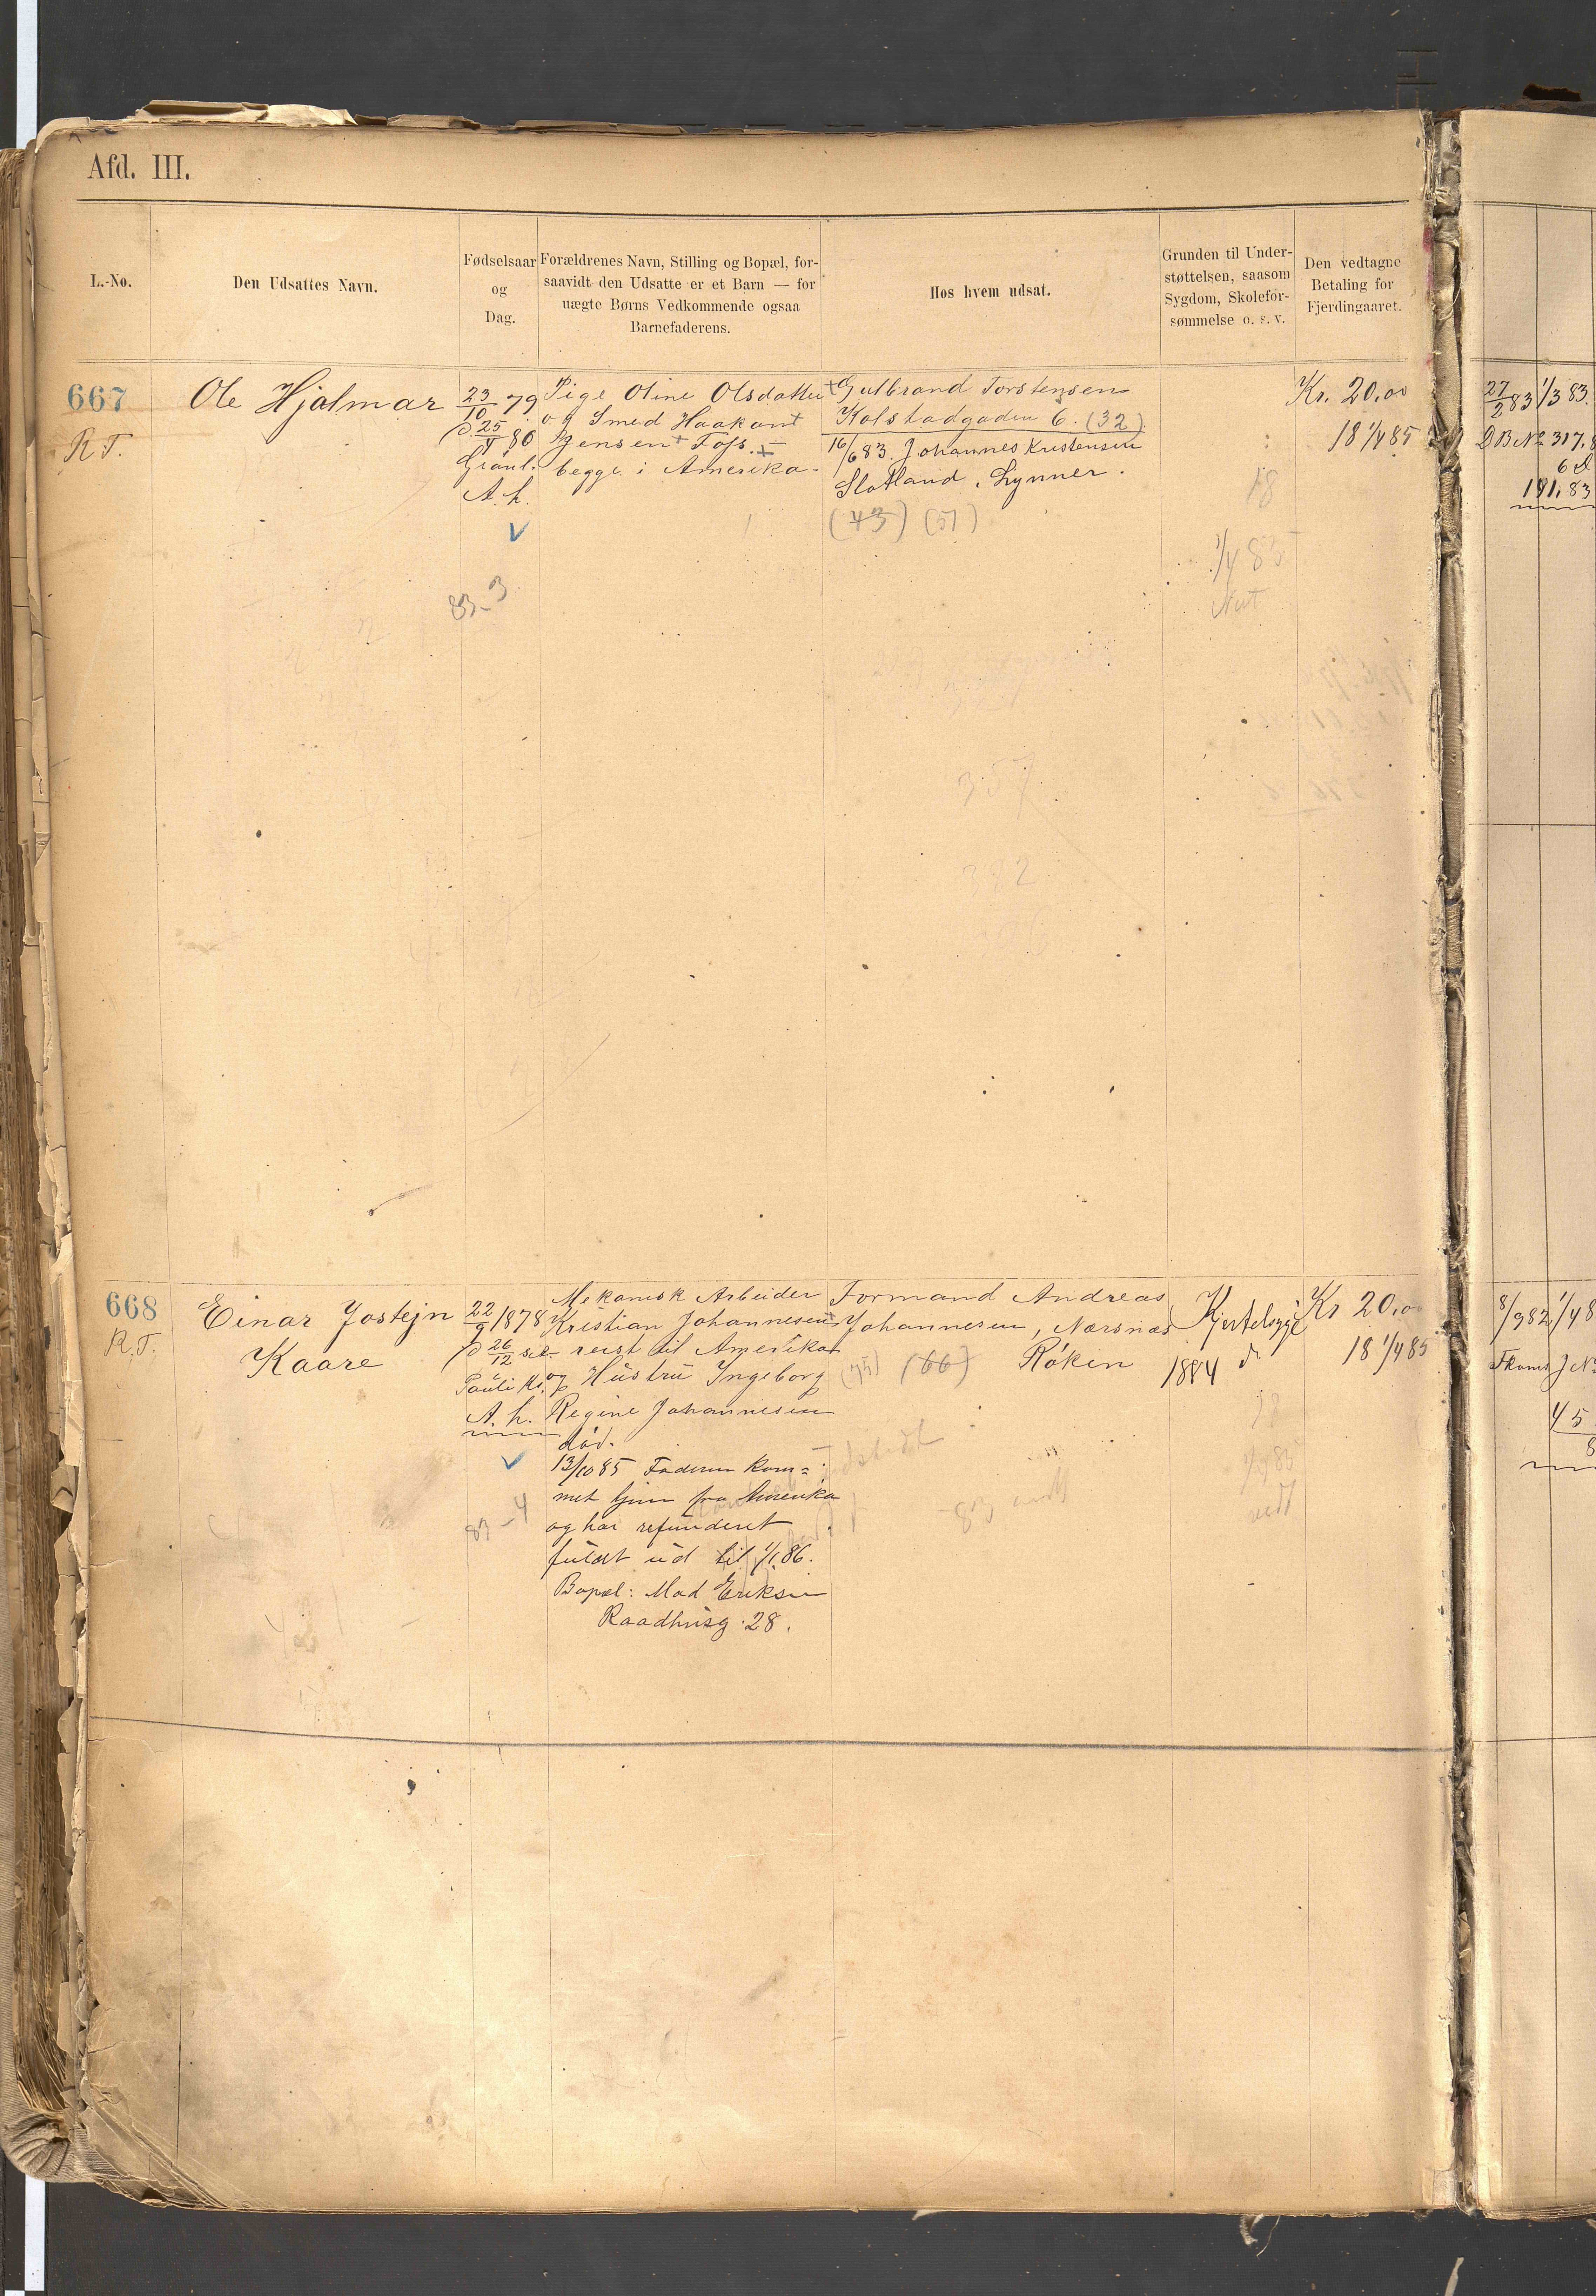 Afd. III.
L.-No.
Den Udsattes Navn.
Fødselsaar
og
Dag.
Forældrenes Navn, Stilling og Bopæl, for-
saavidt den Udsatte er et Barn — for
uægte Børns Vedkommende ogsaa
Barnefaderens.
Hos hvem udsat.
Grunden til Under-
støttelsen, saasom
Sygdom, Skolefor-
sømmelse o. s. v.
Den vedtagne
Betaling for
Fjerdingaaret.
667
R.T.
Ole Hjalmar
23/10 79
25/4 80
A. h.
83-3
Pige Oline Olsdatter
og Smed Haakon
Jensen Foss.
begge i Amerika
Gulbrand Torstensen
Kolstadgaden 6. (32)
16/6 83. Johannes Kristensen
Slotland, Lynner.
(43) (51)
18
1/4 85
Kr. 20.00
18 1/4 85
27/2 83 1/3 83.
DB No 317.8
191.83
668
R.T.
Einar Jostejn
Kaare
22/9 1878
26/12 s.k.
Pauli K.
A. h.
Mekanisk Arbeider
Kristian Johannesen
reist til Amerika
og Hustru Ingeborg
Regine Johannesen
død.
13/10 85 Faderen kom=
met hjem fra Amerika
og har refunderet
fuldt ud til 1/1 86.
Bopæl: Mad Eriksen
Raadhusg. 28.
Formand Andreas
Johannesen, Nærsnæs
(66) Røken
Kjertelsyge
1884
Kr 20.00
18 1/4 85
8/9 82 1/4 8
45
8